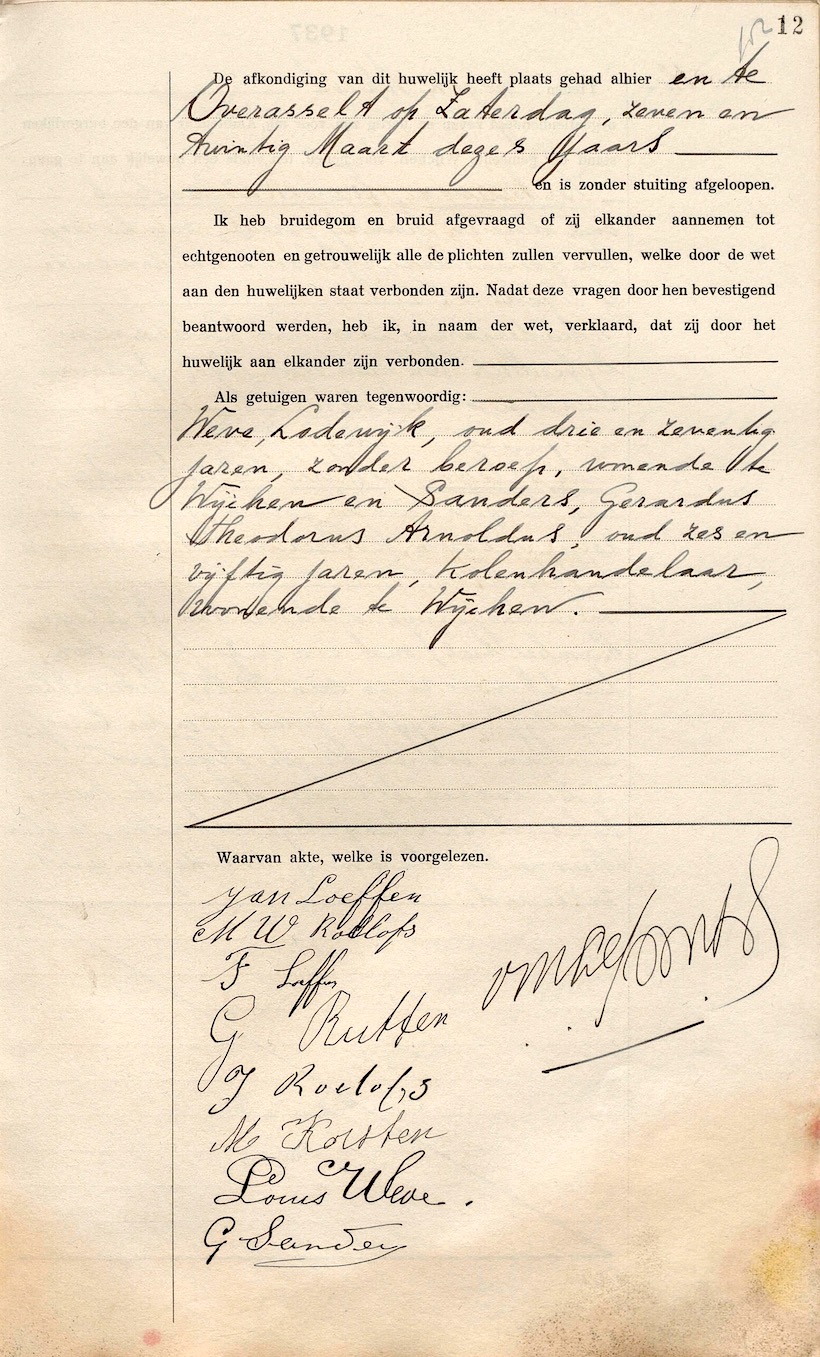 12
De afkondiging van dit huwelijk heeft plaats gehad alhier en te
Overasselt op Zaterdag, zeven en
twintig Maart dezes jaars
en is zonder stuiting afgeloopen.
Ik heb bruidegom en bruid afgevraagd of zij elkander aannemen tot
echtgenooten en getrouwelijk alle de plichten zullen vervullen, welke door de wet
aan den huwelijken staat verbonden zijn. Nadat deze vragen door hen bevestigend
beantwoord werden, heb ik, in naam der wet, verklaard, dat zij door het
huwelijk aan elkander zijn verbonden.
Als getuigen waren tegenwoordig:
Weve, Lodewijk, oud drie en zeventig
jaren, zonder beroep, wonende te
Wijchen en Sanders, Gerardus
Theodorus Arnoldus, oud zes en
vijftig jaren, kolenhandelaar,
wonende te Wijchen.
Waarvan akte, welke is voorgelezen.
Jan Loeffen
M W Roelofs
F Loeffen
G Rutten
J Roelofs
M Korsten
Louis Weve.
G Sanders